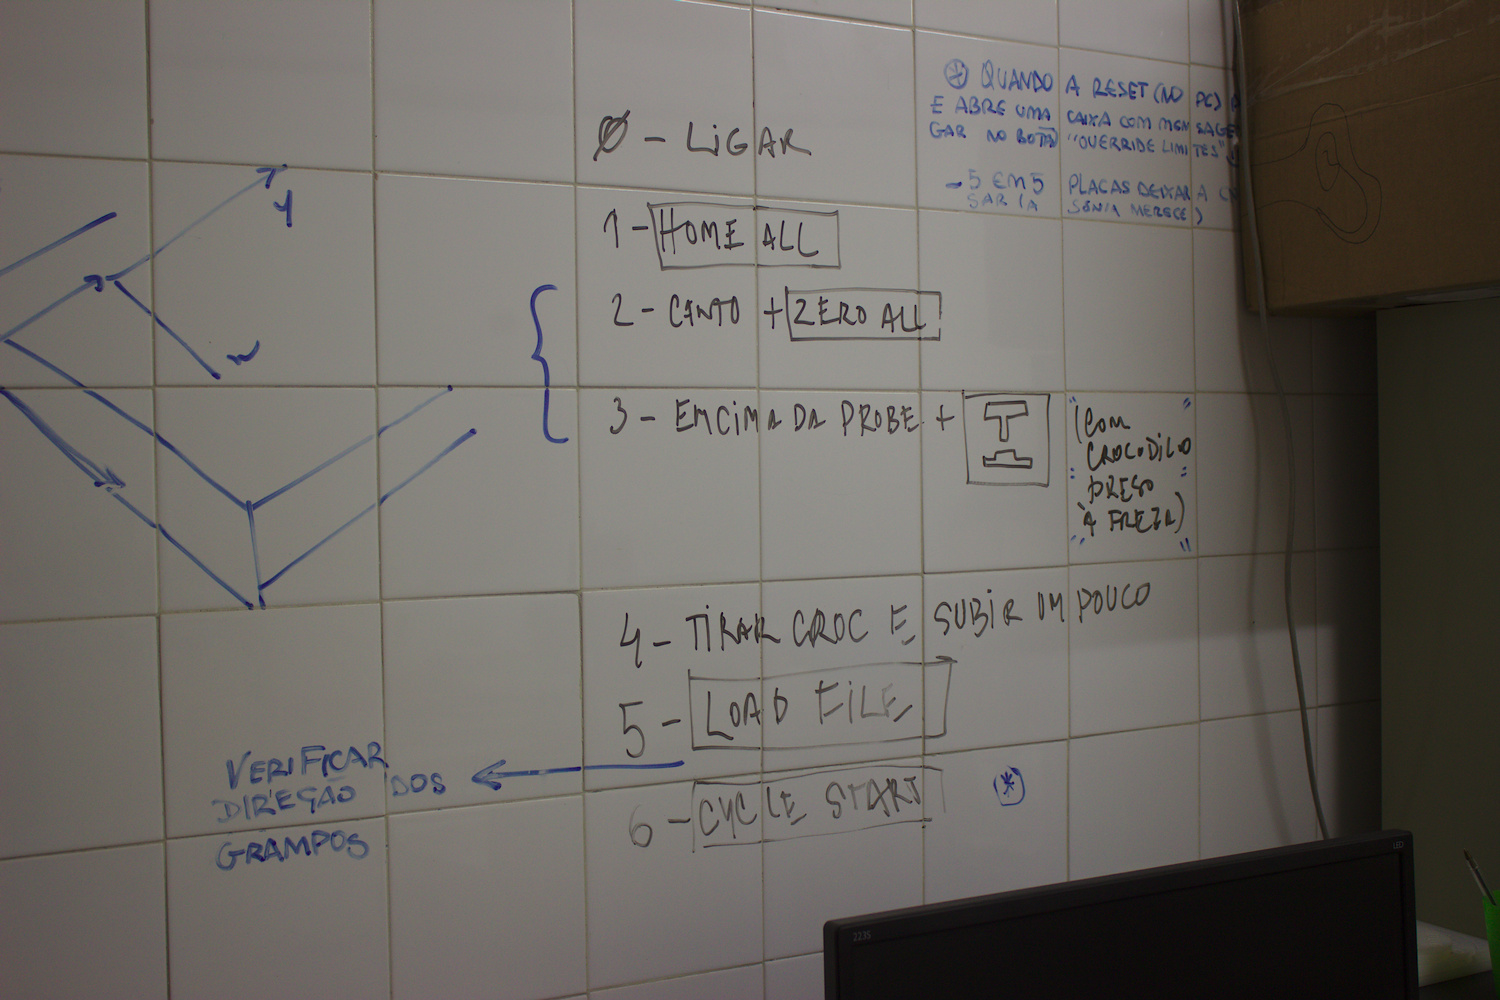 * QUANDO A RESET (NO PC)
E ABRE UMA CAIXA COM MENSAGE
GAR NO BOTÃO "OVERRIDE LIMITES"
- 5 EM 5 PLACAS DEIXAR A
SAR (A SÔNIA MERECE)
0 - LIGAR
1 - HOME ALL
2 - CANTO + ZERO ALL
3 - EMCIMA DA PROBE +
(COM
CROCODILO
PRESO
À FREZA)
4 - TIRAR CROC E SUBIR UM POUCO
5 - LOAD FILE
6 - CYCLE START *
VERIFICAR
DIREÇÃO DOS
GRAMPOS
Y
2235
LED